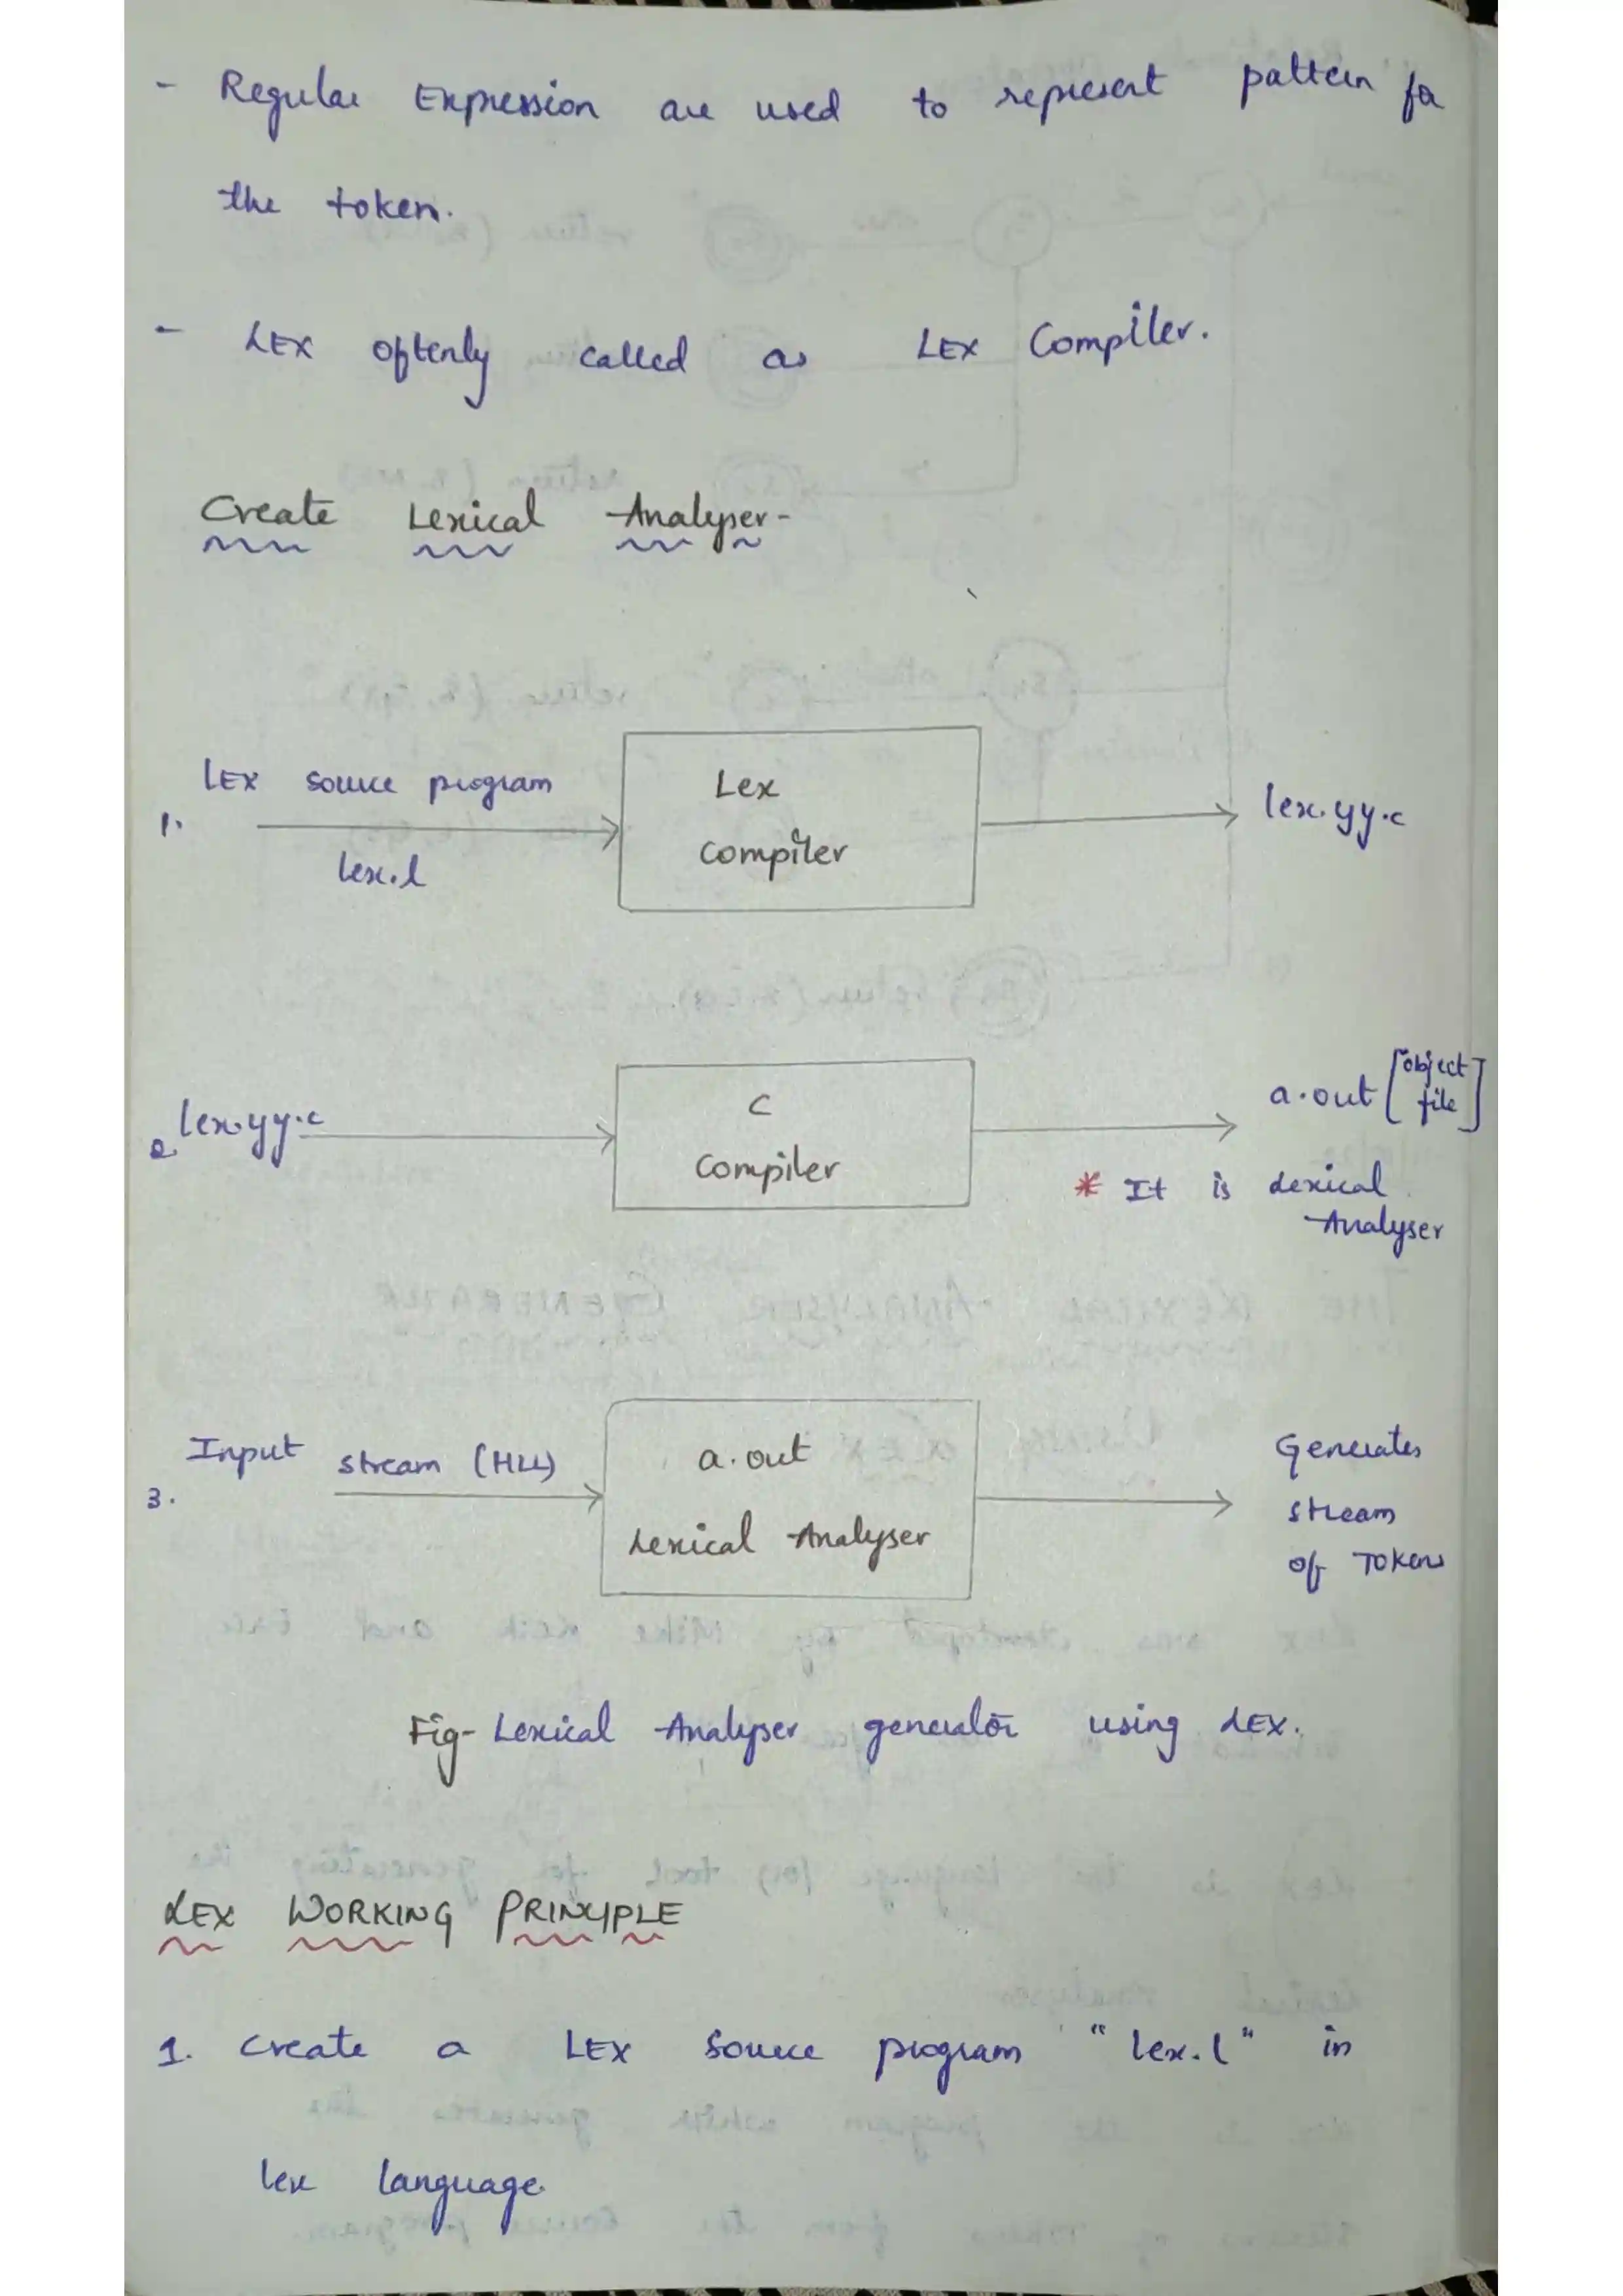 - Regular Expression are used to represent pattern for
the token.
- LEX oftenly called as LEX Compiler.
Create Lexical Analyser-
1. LEX source program
lex.l
Lex
Compiler
lex.yy.c
2. lex.yy.c
C
Compiler
a.out [object
file]
* It is Lexical
Analyser
3. Input stream (HLL)
a.out
Lexical Analyser
Generates
stream
of Tokens
Fig- Lexical Analyser generator using LEX.
LEX WORKING PRINCIPLE
1. Create a LEX source program "lex.l" in
lex language.